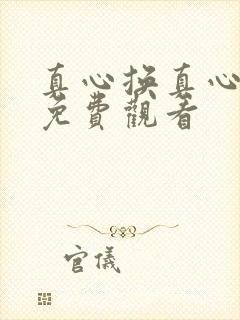 真心換真心
免費觀看
官儀